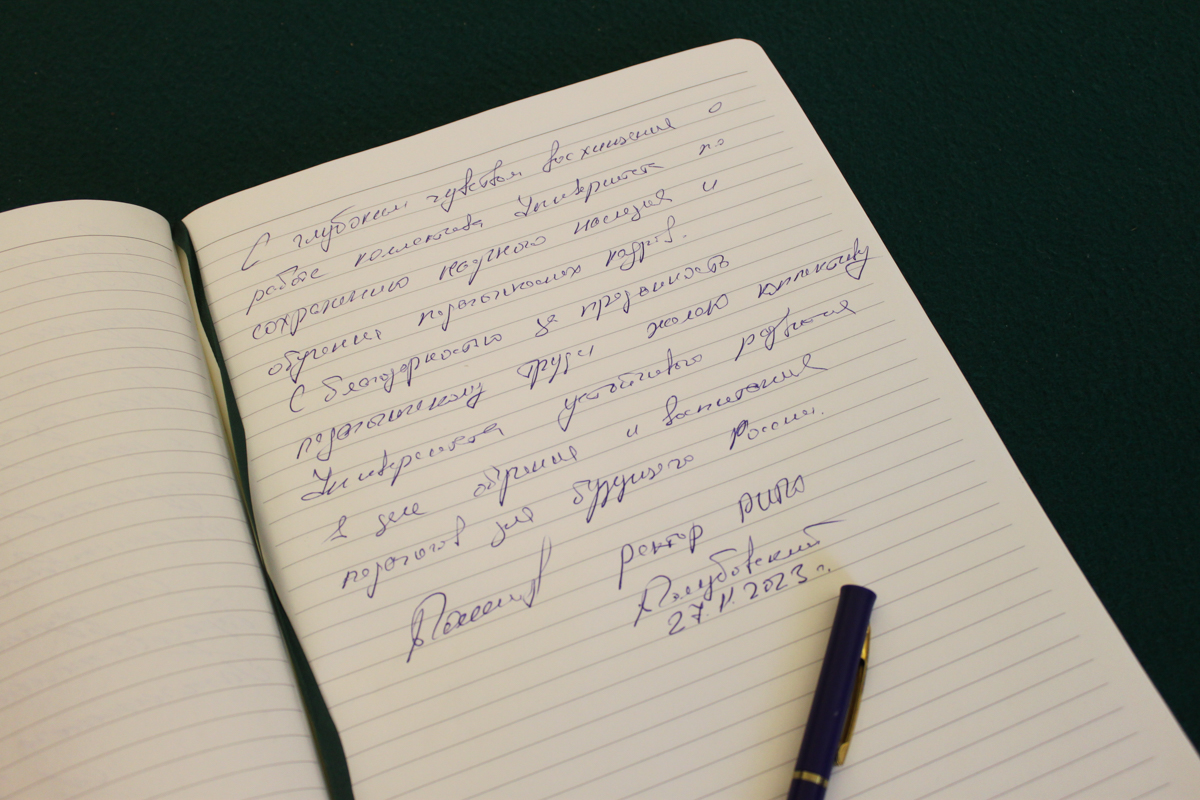 С глубоким чувством восхищения о
работе коллектива Университета по
сохранению научного наследия и
обучении педагогических кадров.
С благодарностью за преданность
педагогическому труду желаю коллективу
Университета устойчивого развития
в деле обучения и воспитания
педагогов для будущего России.
ректор РИПО
Голубовский
27.11.2023 г.